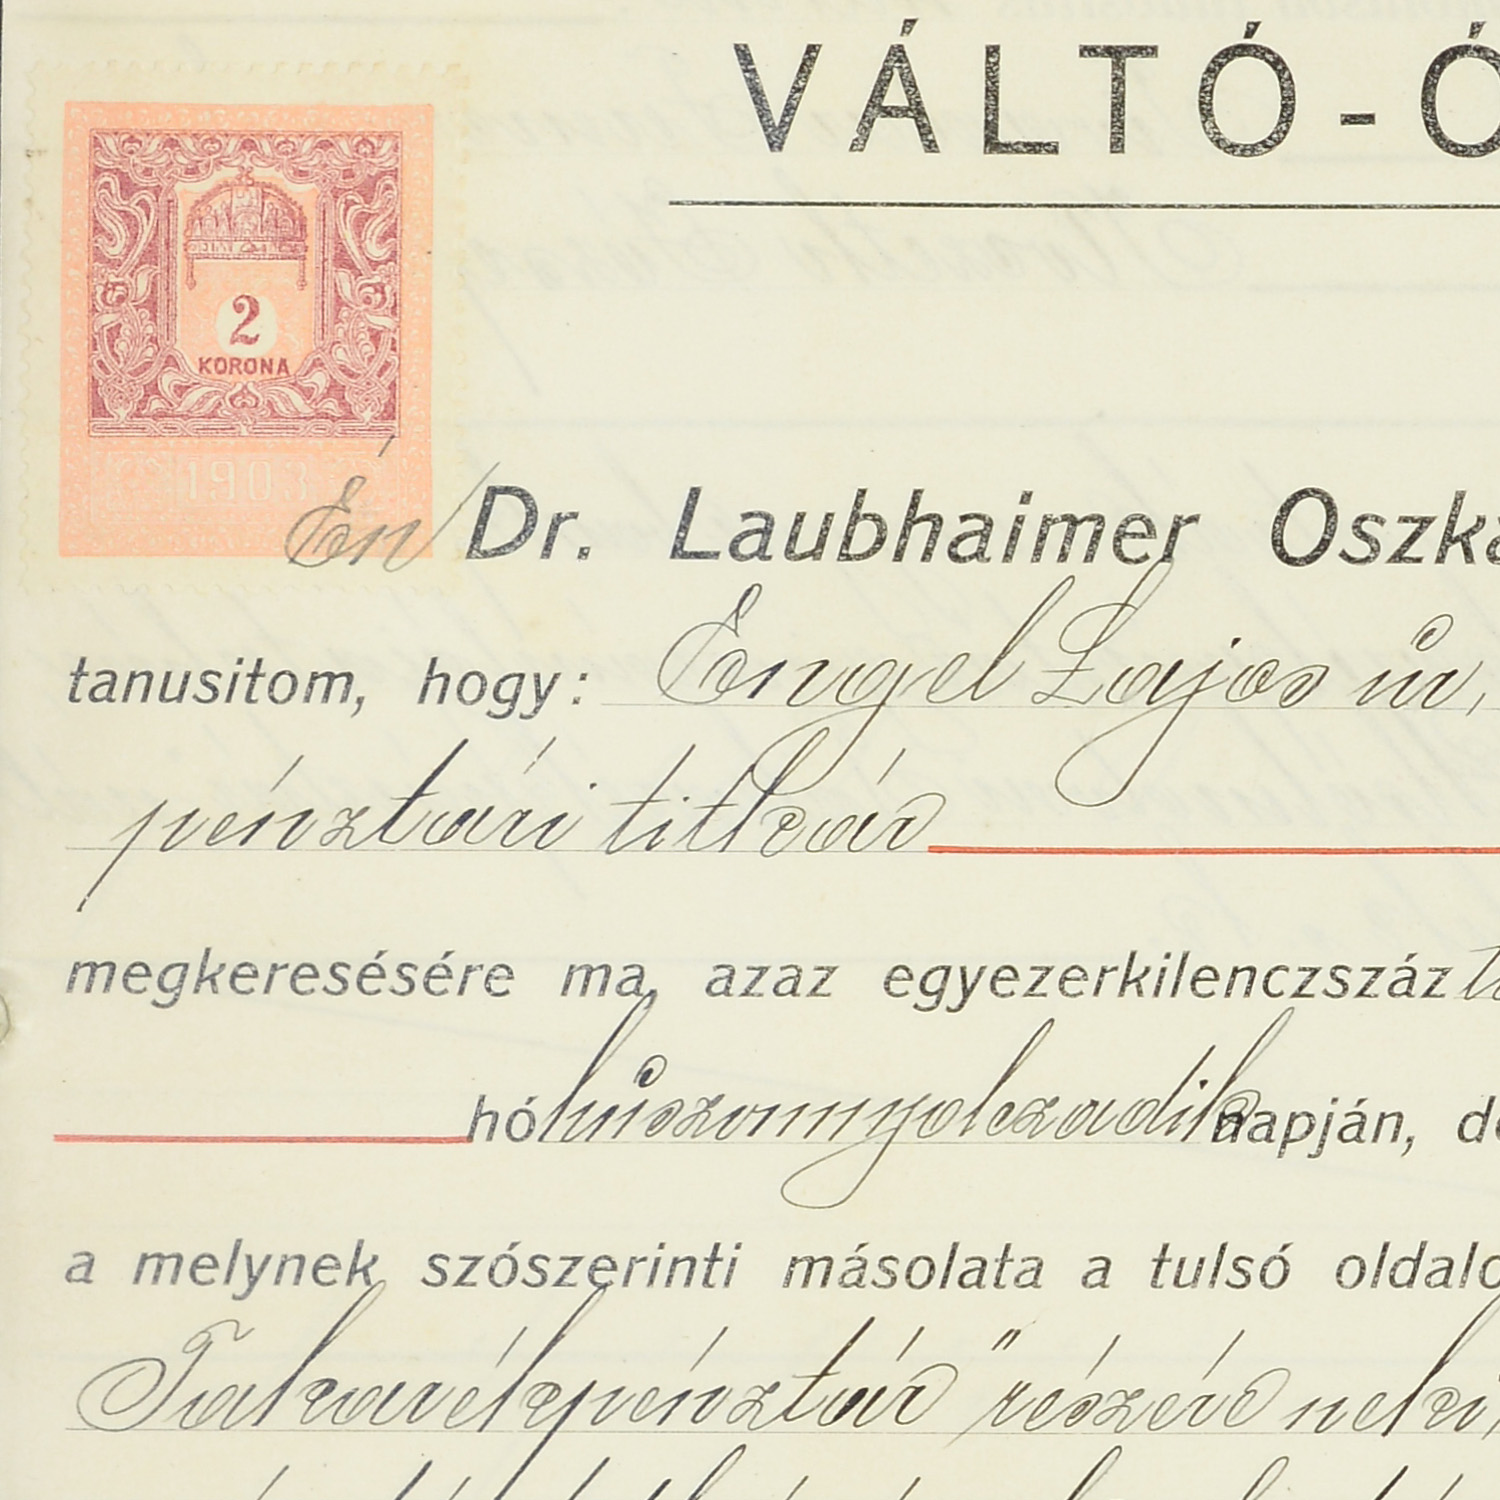 VÁLTÓ-Ó
2
KORONA
1903
Én Dr. Laubhaimer Oszká
tanusitom, hogy: Engel Lajos úr,
pénztári titkár
megkeresésére ma, azaz egyezerkilenczszáz
hó húszonnyolczadik napján, de
a melynek szószerinti másolata a tulsó oldalo
Takarékpénztár" részére neki,